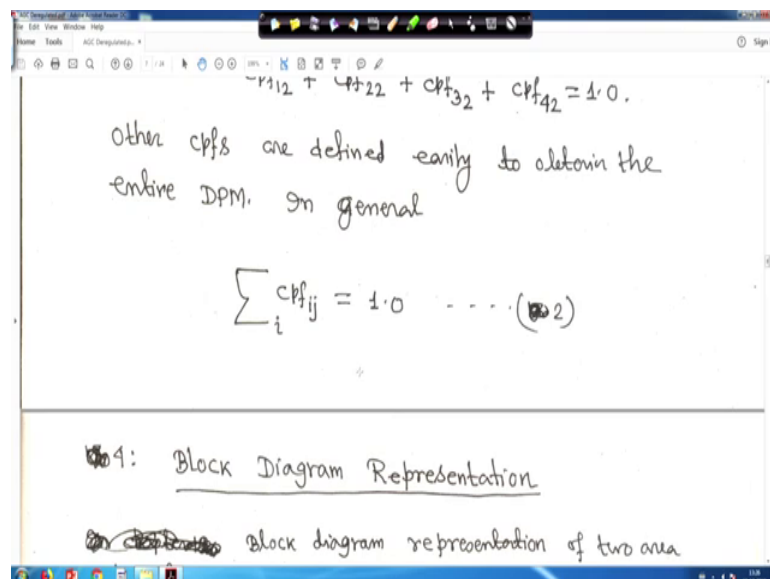 AGC Deregulated.pdf - Adobe Acrobat Reader DC
File Edit View Window Help
Home Tools AGC Deregulated.p... × Sign
cpf12 + cpf22 + cpf32 + cpf42 = 1.0.
Other cpfs are defined easily to obtain the
entire DPM. In general
∑i cpfij = 1.0 - - - - (2)
4: Block Diagram Representation
Block diagram representation of two area